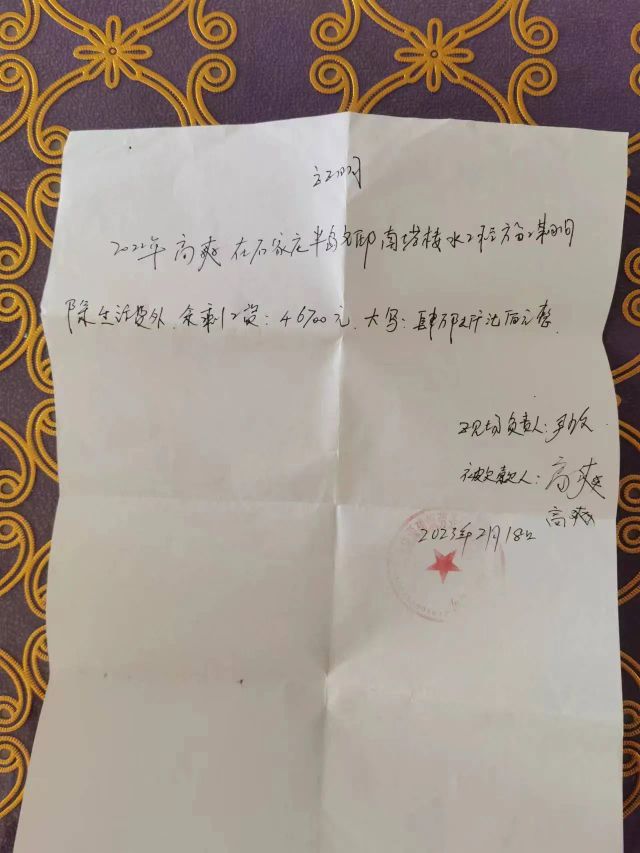 证明
2022年高爽在石家庄半岛名邸南塔楼水工程方面工作期间
除生活费外,余剩工资:46700元,大写:肆万陆仟柒佰元整
现场负责人:
被欠款人:高爽
高爽
2023年2月18日